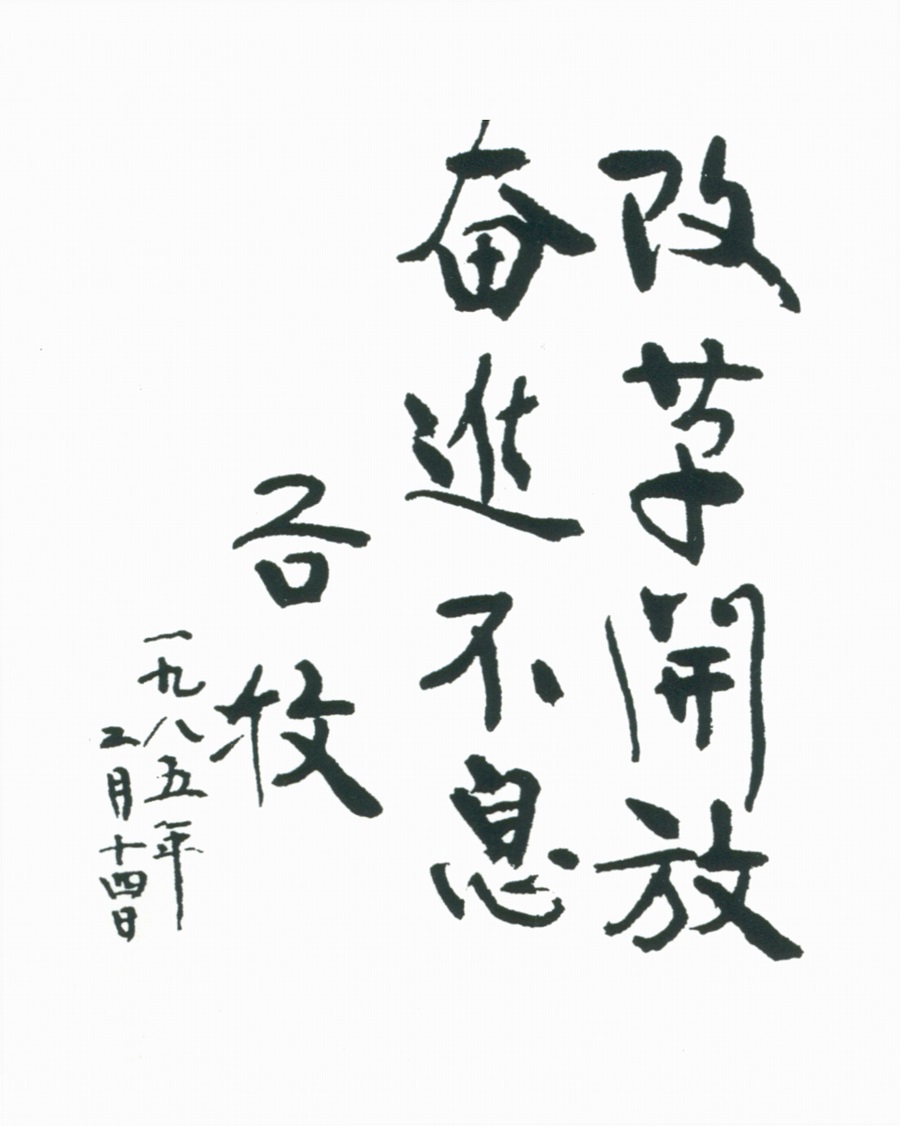 改革開放
奋進不息
谷牧
一九八五年
二月十四日